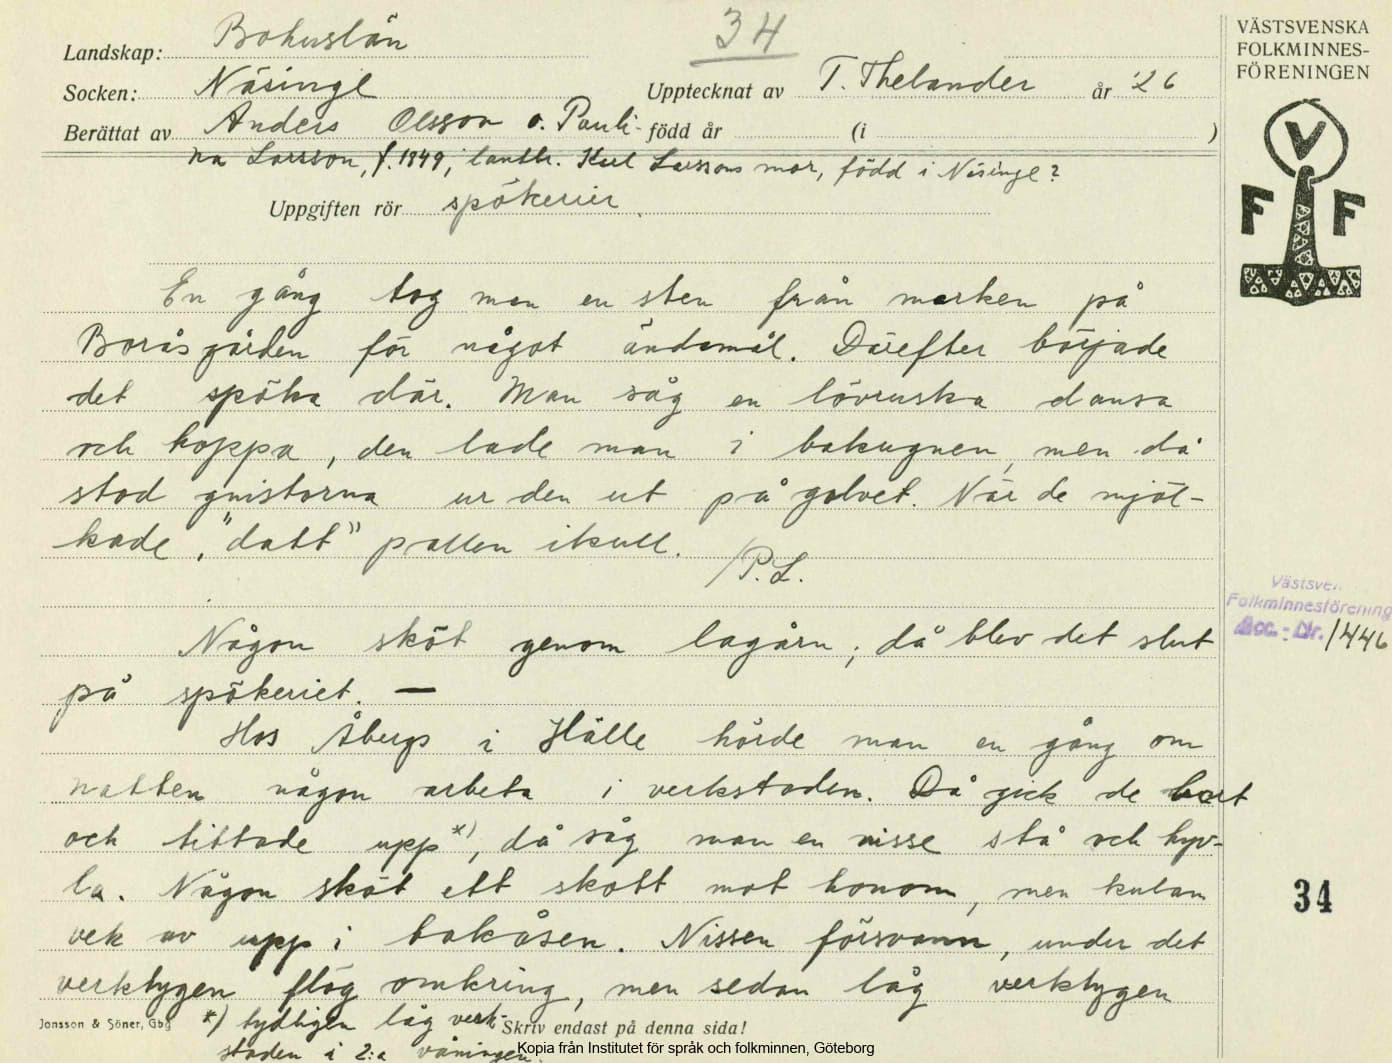 Landskap: Bohuslän
34
Socken: Näsinge
Upptecknat av T. Thelander år '26
Berättat av Anders Olsson o. Pauli- född år (i )
na Larsson, f. 1849, lantbr. Karl Larssons mor, född i Näsinge?
Uppgiften rör spökerier.
En gång tog man en sten från marken på
Boråsgården för något ändamål. Därefter började
det spöka där. Man såg en lövruska dansa
och hoppa, den lade man i bakugnen, men då
stod gnistorna ur den ut på golvet. När de mjöl-
kade, "datt" pallen ikull.
/P. L.
Någon sköt genom lagårn; då blev det slut
på spökeriet. —
Hos Åbergs i Hälle hörde man en gång om
natten någon arbeta i verkstaden. Då gick de bort
och tittade upp *), då såg man en nisse stå och hyv-
la. Någon sköt ett skott mot honom, men kulan
vek av upp i takåsen. Nissen försvann, under det
verktygen flög omkring, men sedan låg verktygen
*) tydligen låg verk-
staden i 2:a våningen.
Jonsson & Söner, Gbg
Skriv endast på denna sida!
Kopia från Institutet för språk och folkminnen, Göteborg
VÄSTSVENSKA
FOLKMINNES-
FÖRENINGEN
V
F F
Västsven.
Folkminnesförening
Acc.-Nr. 1446
34